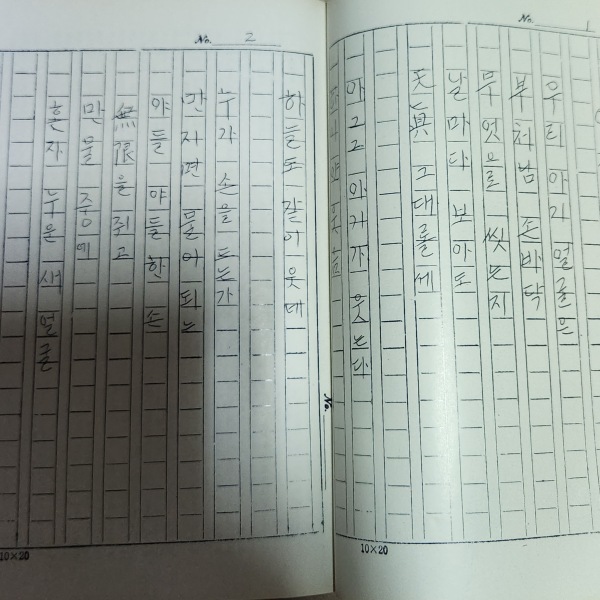 No. 1
우리 아기 얼굴은
부처님 손바닥
무엇으로 씻는지
날마다 보아도
天眞 그대롤세
아그그 아기가 웃는다
10×20
No. 2
하늘도 같이 웃데
누가 손을 드는가
만지면 물이 되는
야들 야들한 손
無限을 쥐고
만물 중에
혼자 누운 새 얼굴
10×20
No.